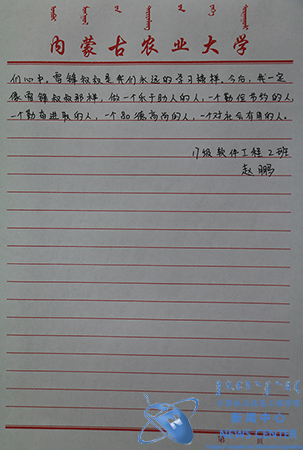 内蒙古农业大学
们心中，雷锋叔叔是我们永远的学习榜样，今后，我一定
像雷锋叔叔那样，做一个乐于助人的人，一个勤俭节约的人，
一个勤奋进取的人，一个品德高尚的人，一个对社会有用的人。
17级软件工程2班
赵鹏
新闻中心
NEWS CENTER
第 页